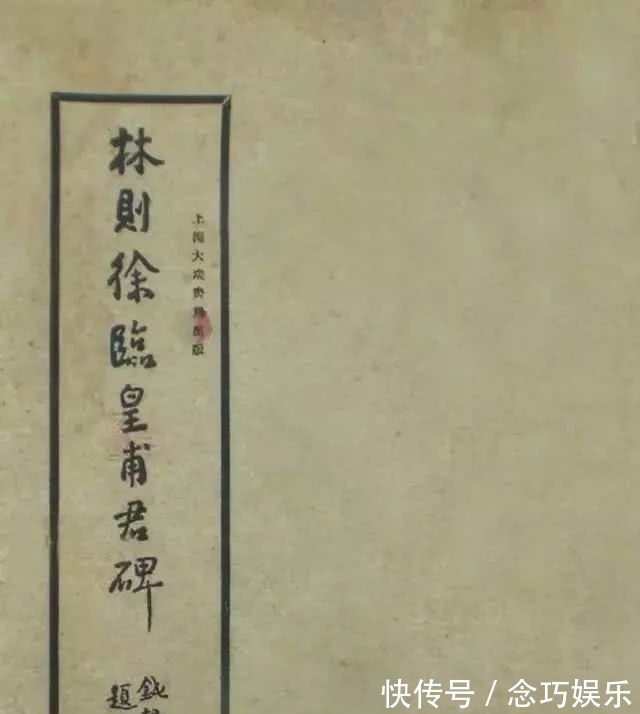 林則徐臨皇甫君碑
上海大眾書局出版
題
快传号 / 念巧娱乐